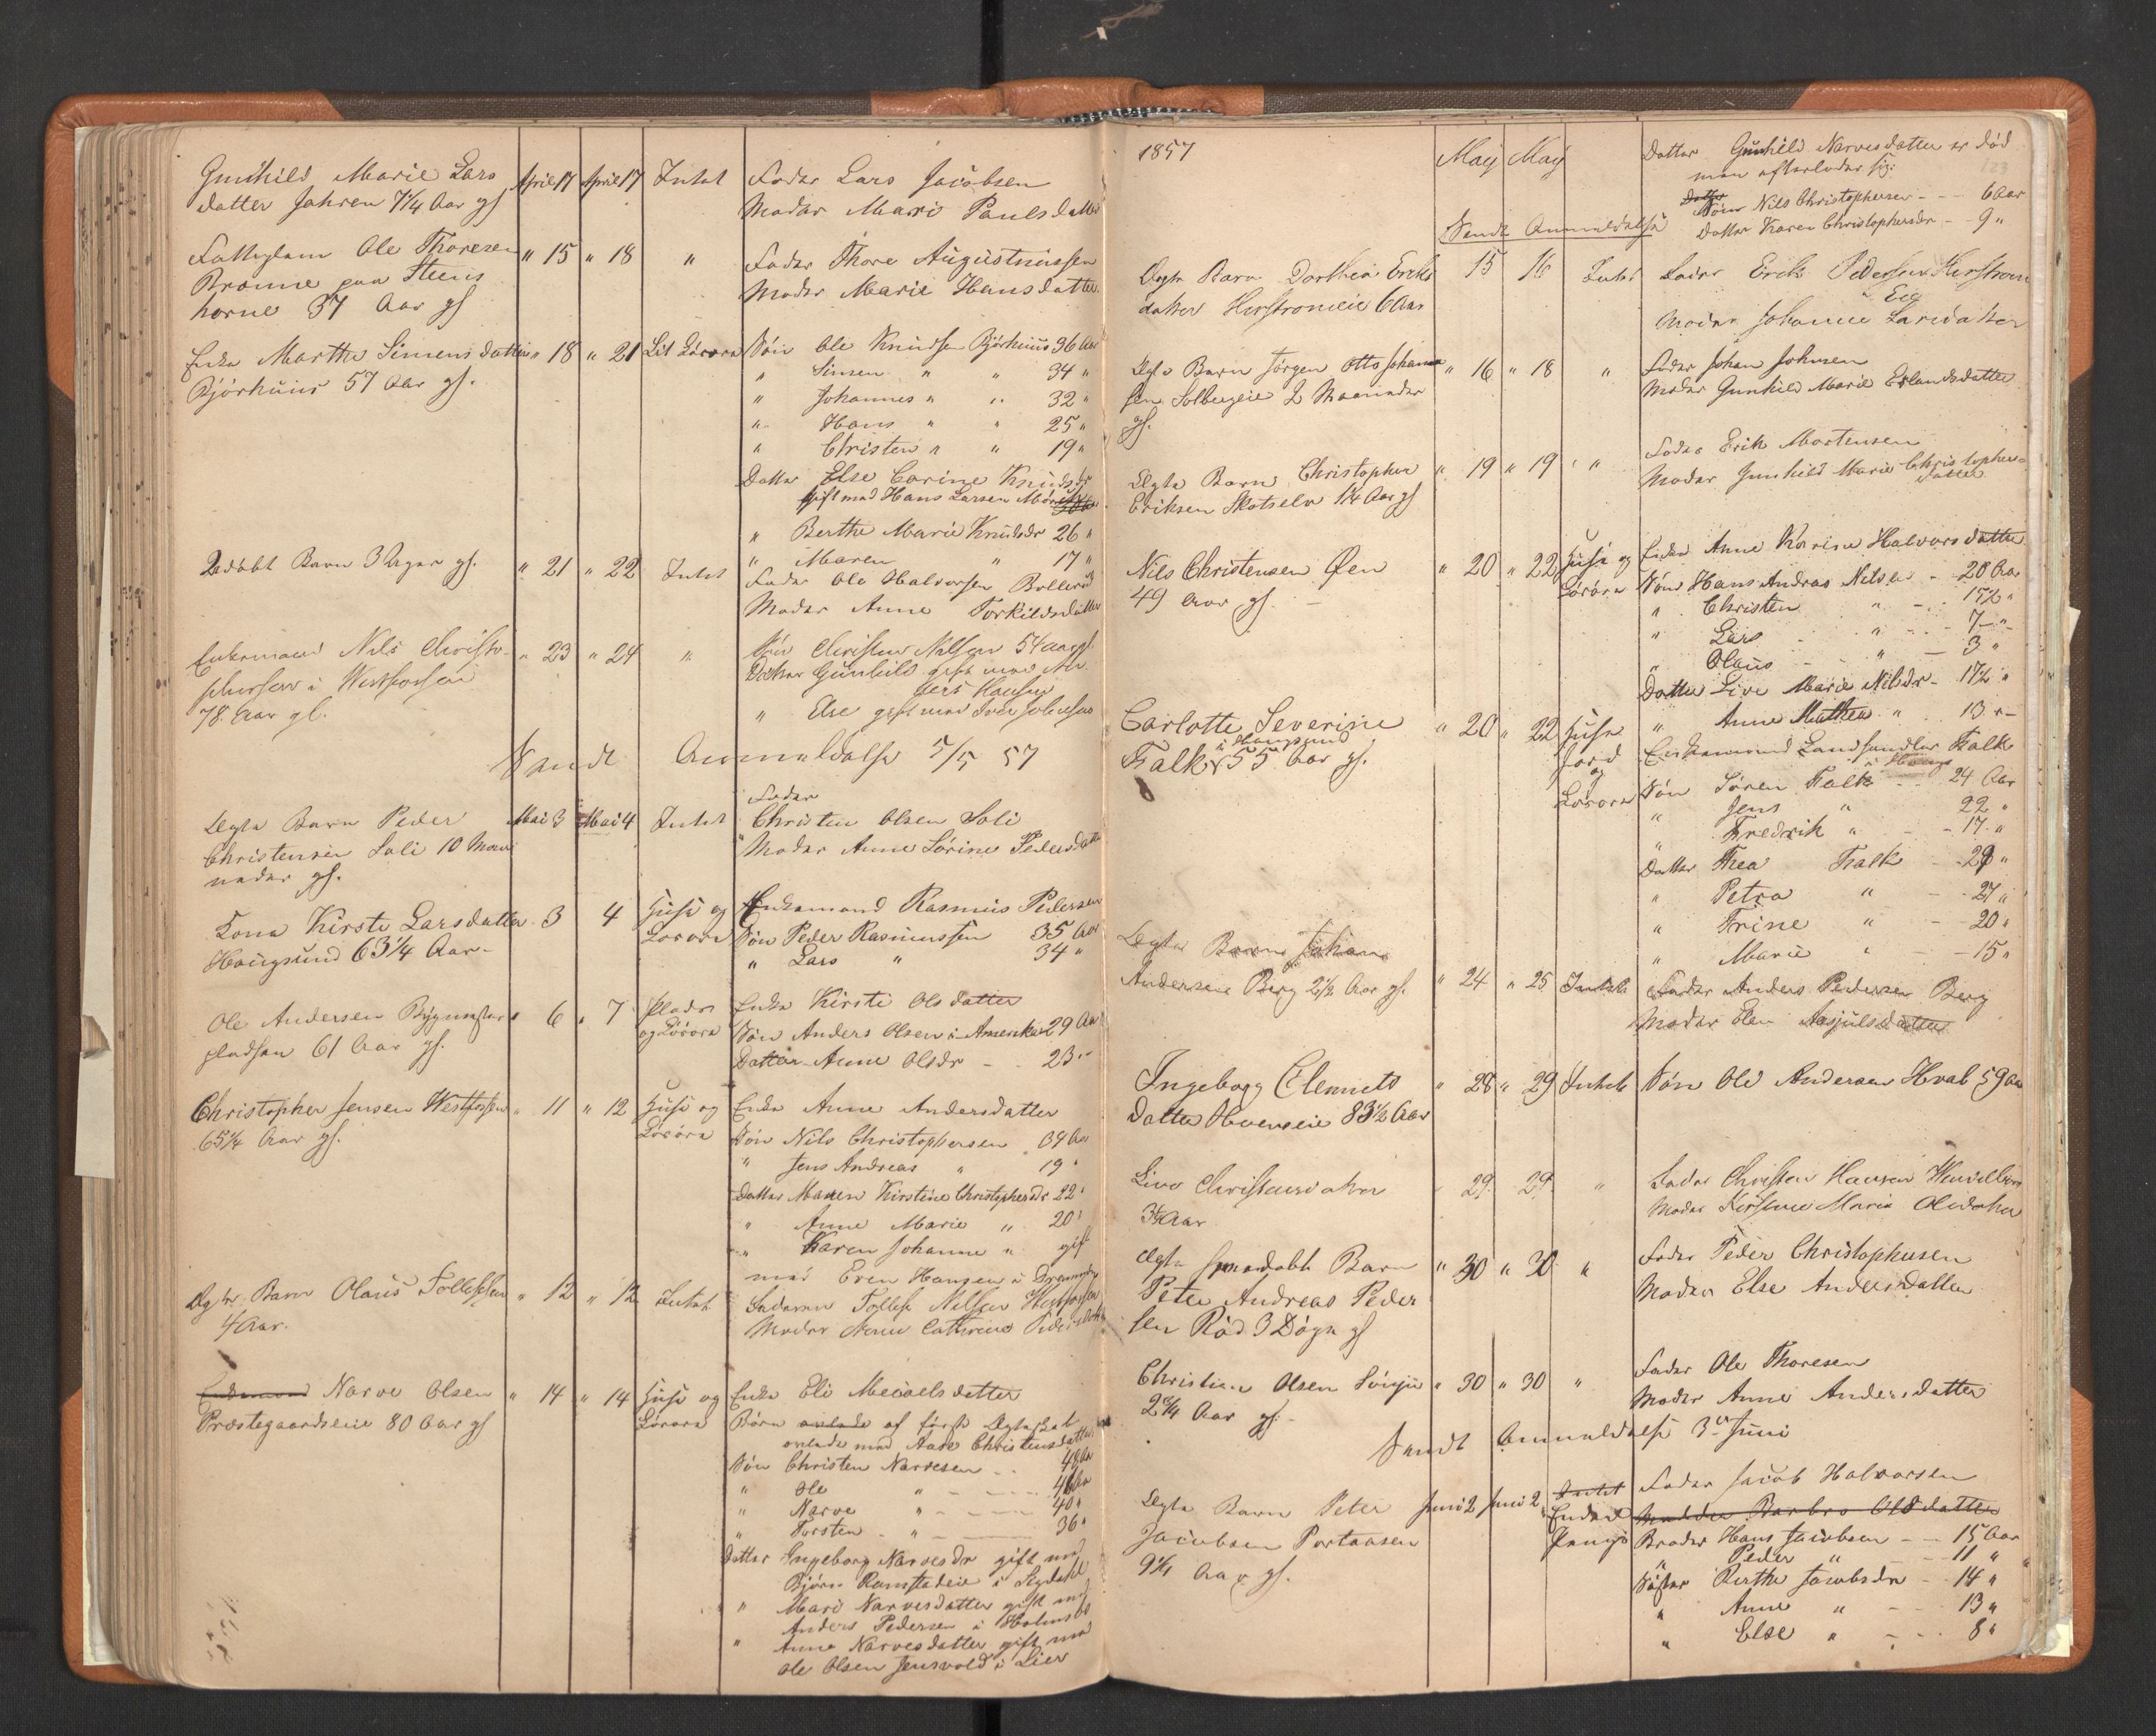 Gunhild Marie Lars April 17 April 17 Intet Fader Lars Jacobsen
datter Jahren 7 1/4 Aar gl Moder Mari Paulsdatter
Fattiglem Ole Thoresen " 15 " 18 " Fader Thore Augustinussen
Brænne paa Steens Moder Marie Hansdatter
horne 37 Aar gl
Enke Marthe Simensdatter " 18 " 21 Lit Løsøre Søn Ole Knudsen Bjørhuus 36 Aar
Bjørhuus 57 Aar gl. " Simen " " 34 "
" Johannes " " 32 "
" Hans " " 25 "
" Christen " " 19 "
Datter Else Corine Knudsdr
gift med Hans Larsen
" Berthe Marie Knudsdr 26 "
" Maren " 17 "
Udøbt Barn 3 Uger gl. " 21 " 22 Intet Fader Ole Halvorsen
Moder Anne Torkildsdatter
Enkemand Nils Christo- " 23 " 24 " Søn Christen Nilsen 54 aar gl.
phersen i Westfossen Datter Gunhild gift med An-
78 Aar gl. ders Hansen
" Else gift med
Sendt Anmeldelse 5/5 57
Ægte Barn Peder Mai 3 Mai 4 Intet Fader
Christensen Soli 10 Maa Christen Olsen Soli
neder gl. Moder Anne Sørine Pedersdatter
Kona Kirsti Larsdatter 3 4 Huse og Enkemand Rasmus Pedersen
Hougsund 63 1/4 Aar - Løsøre Søn Peder Rasmussen 35 Aar
" Lars " 34 "
Ole Andersen Bygmester " 6 " 7 Plads Enke Kirsti Olsdatter
pladsen 61 Aar gl. og Løsøre Søn Anders Olsen i Amerika 29 Aar
Datter Anne Olsdr - 23 "
Christopher Jensen Westfossen " 11 " 12 Huse og Enke Anne Andersdatter
65 1/4 Aar gl. Løsøre Søn Nils Christophersen 34 Aar
" Jens Andreas " 19 "
Datter Maren Kirstine Christophersdr 22 "
" Anne Marie " 20 "
" Karen Johanne " gift
med Even Hansen i Drammen
Ægte Barn Olaus Tollefsen " 12 " 12 Intet Faderen Tollef Nilsen Westfossen
4 Aar. Moder Anne Cathrine Pedersdatter
Enkemand Narve Olsen " 14 " 14 Huse og Enke Eli Micaelsdatter
Præstegaardseie 80 Aar gl Løsøre Børn avlede af første Ægteskab
avlede med Aase Christensdatter
Søn Christen Narvesen 48 Aar
" Ole "
" Narve " 40 "
" Torsten " 36 "
Datter Ingeborg Narvesdr gift med
Bjørn Ramstadeie i Sigdahl
" Mari Narvesdatter gift med
Anders Pedersen i Holmsbo
" Anne Narvesdatter gift med
Ole Olsen Jensvold i Lier
1857 May May Datter Gunhild Narvesdatter er død
men efterlader sig:
Søn Nils Christophersen - - - 6 Aar
Sendt Anmeldelse Datter Karen Christophersdr - - 9 "
Ægte Barn Dorthea Eriks 15 16 Intet Fader Erik Pedersen Herstrøm
datter Herstrømeie 6 Aar Eie
Moder Johanne Larsdatter
Ægte Barn Jørgen Otto Johan " 16 " 18 " Fader Johan Johnsen
sen Solbergeie 2 Maaneder Moder Gunhild Marie Erlandsdatter
gl.
Ægte Barn Christopher " 19 " 19 " Fader Erik Mortensen
Eriksen Skotselv 1 1/4 Aar gl Moder Gunhild Marie Christophers-
datter
Nils Christensen Øen " 20 " 22 Huse og Enke Anne Karine Halvorsdatter
49 Aar gl. - Løsøre Søn Hans Andreas Nilsen - 20 Aar
" Christen " - 15 1/2 "
" Lars " - 7 - "
" Olaus " - 3 "
Datter Live Marie Nilsdr - 17 1/2 "
" Anne Mathea " 13 "
Carlotte Severine " 20 " 22 Huse Enkemand Landhandler Falk
i Hougsund Jord
Falk 55 Aar gl. og
Løsøre Søn Søren Falk - - 24 Aar
" Jens " 22 "
" Fredrik " - - 17 "
Datter Thea Falk - 29 "
" Petra " - - 27 "
" Trine " - 20 "
" Marie " - - 15 "
Ægte Barn Johan
Andersen Berg 2 1/2 Aar gl. " 24 " 25 Intet Fader Anders Pedersen Berg
Moder Elen Aasjulsdatter
Ingeborg Clemets " 28 " 29 Intet Søn Ole Andersen Hval 59 Aar
datter Hoenseie 83 1/2 Aar
Live Christensdatter 29 29 " Fader Christen Hansen
3 1/4 Aar Moder Kirstine Marie Olsdatter
Ægte hjemmedøbt Barn " 30 " 30 " Fader Peder Christophersen
Peter Andreas Peder Moder Else Andersdatter
sen Rød 3 Døgn gl
Christian Olsen " 30 " 30 " Fader Ole Thoresen
2 1/4 Aar gl. - Moder Anne Andersdatter
Sendt Anmeldelse 3die Juni
Ægte Barn Peter Juni 2 Juni 2 Intet Fader Jacob Halvorsen
Jacobsen Portaasen Moder Barbro Olsdatter
9 1/4 Aar gl. Penge Broder Hans Jacobsen - - 15 Aar
" Peder " - - 11 "
Søster Berthe Jacobsdr - 14 "
" Anne " - - 13 "
" Else " - - 8 "